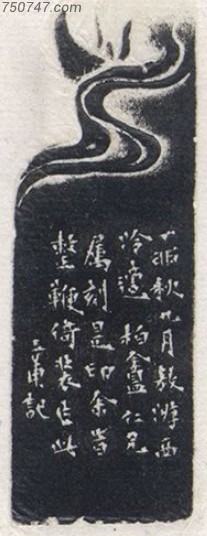 750747.com
卯秋九月數游西
泠適柏盦仁兄
屬刻是印余
整鞭倚裝作此
記